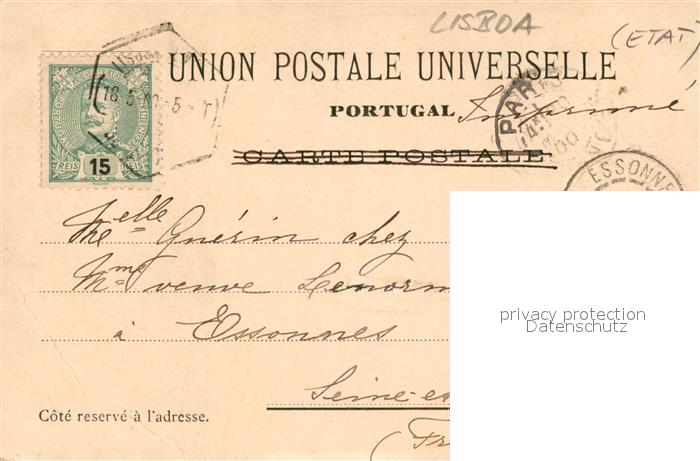 LISBOA
(ETAT)
UNION POSTALE UNIVERSELLE
PORTUGAL Imprimé
CARTE POSTALE
REIS 15
PAR
ESSONNE
Melle Guérin chez
Mme veuve Lenorm
à Essonnes
Seine-es
(Fr
Côté reservé à l'adresse.
privacy protection
Datenschutz